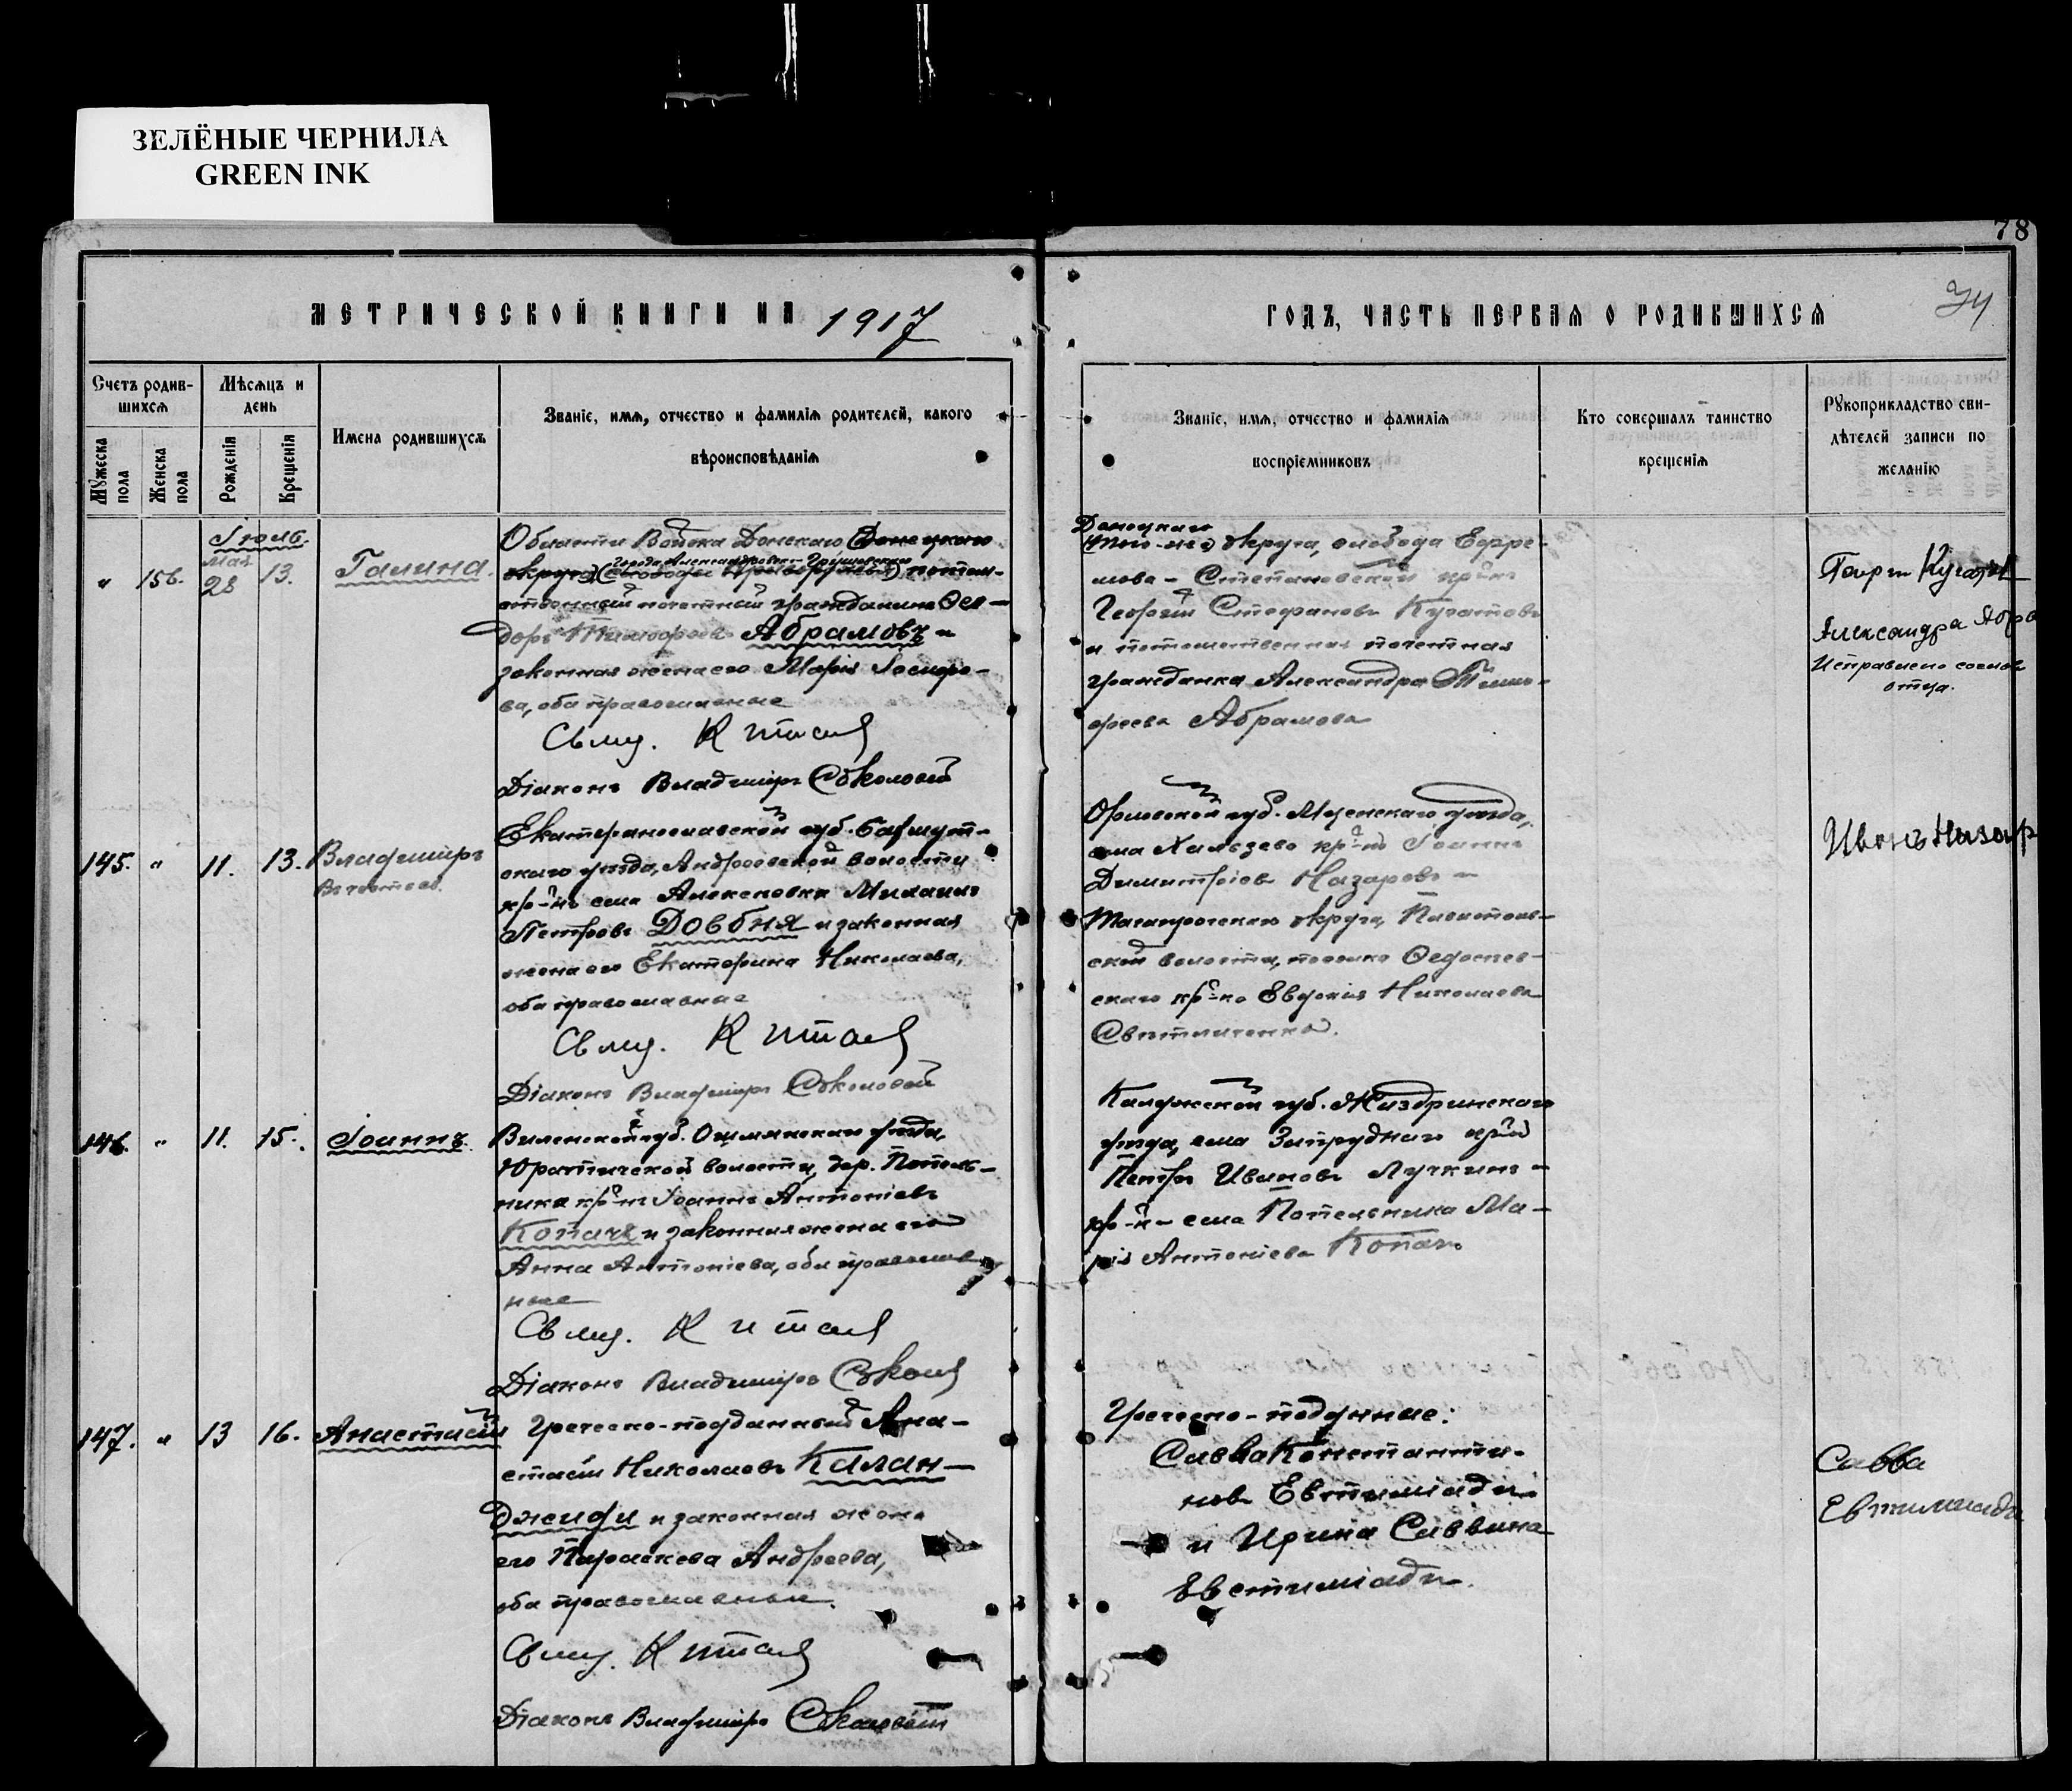 ЗЕЛЁНЫЕ ЧЕРНИЛА
GREEN INK
78
МЕТРИЧЕСКОЙ КНИГИ НА 1917
ГОДЪ, ЧАСТЬ ПЕРВАЯ О РОДИВШИХСЯ
Счетъ родив-
шихся
Мѣсяцъ и
день
Мужеска
пола
Женска
пола
Рожденія
Крещенія
Имена родившихся
Званіе, имя, отчество и фамилія родителей, какого
вѣроисповѣданія
Званіе, имя, отчество и фамилія
воспріемниковъ
Кто совершалъ таинство
крещенія
Рукоприкладство сви-
дѣтелей записи по
желанію
Іюль.
Мая
" 156. 28 13. Галина.
Области Войска Донскаго (Донецкаго
округа) потом-
ственный почетный гражданинъ Ѳео-
доръ Тимофеевъ Абрамовъ и
законная жена его Марія
ва, оба православные
Свящ. Китай
Діаконъ Владиміръ Соколовъ
Донецкаго
округа, слобода Ефре-
мова-Степановской кр-нъ
Георгій Стефановъ Кучатовъ
и потомственная почетная
гражданка Александра Тимо-
феева Абрамова
Александра Абра
Исправлено со слов
отца.
145. " 11. 13. Владиміръ
Екатеринославской губ. Бахмут-
скаго уѣзда, Андреевской волости
кр-нъ села Алексеевки Михаилъ
Петровъ Довбня и законная
жена его Екатерина Николаева,
оба православные
Свящ. Китай
Діаконъ Владиміръ Соколовъ
Орловской губ. Мценскаго уѣзда,
села кр-нъ Іоаннъ
Димитріевъ Назаровъ -
Таганрогскаго округа,
ской волости, поселка
скаго кр-ка Евдокія Николаева
Светличенко.
Иванъ Назар
146. " 11. 15. Іоаннъ.
Виленской губ. Ошмянскаго уѣзда,
Юратишской волости, дер. Потель-
ника кр-нъ Іоаннъ Антоніевъ
Копачъ и законная жена его
Анна Антоніева, оба православ
ные
Свящ. Китай
Діаконъ Владиміръ
Калужской губ. Жиздринскаго
уѣзда, села Запруднаго
Петръ Ивановъ Лучкинъ -
села Потельника Ма-
рія Антоніева Копачъ
147. " 13 16. Анастасій
Греческо-подданный Ана-
стасій Николаевъ Калан-
джиди и законная жена
его Параскева Андреева,
оба православные.
Свящ. Китай
Діаконъ Владиміръ Соколовъ
Греческо-подданные:
Савва Константи-
новъ Евтиміади
и Ирина Саввина
Евстиміади.
Савва
Евтимиади